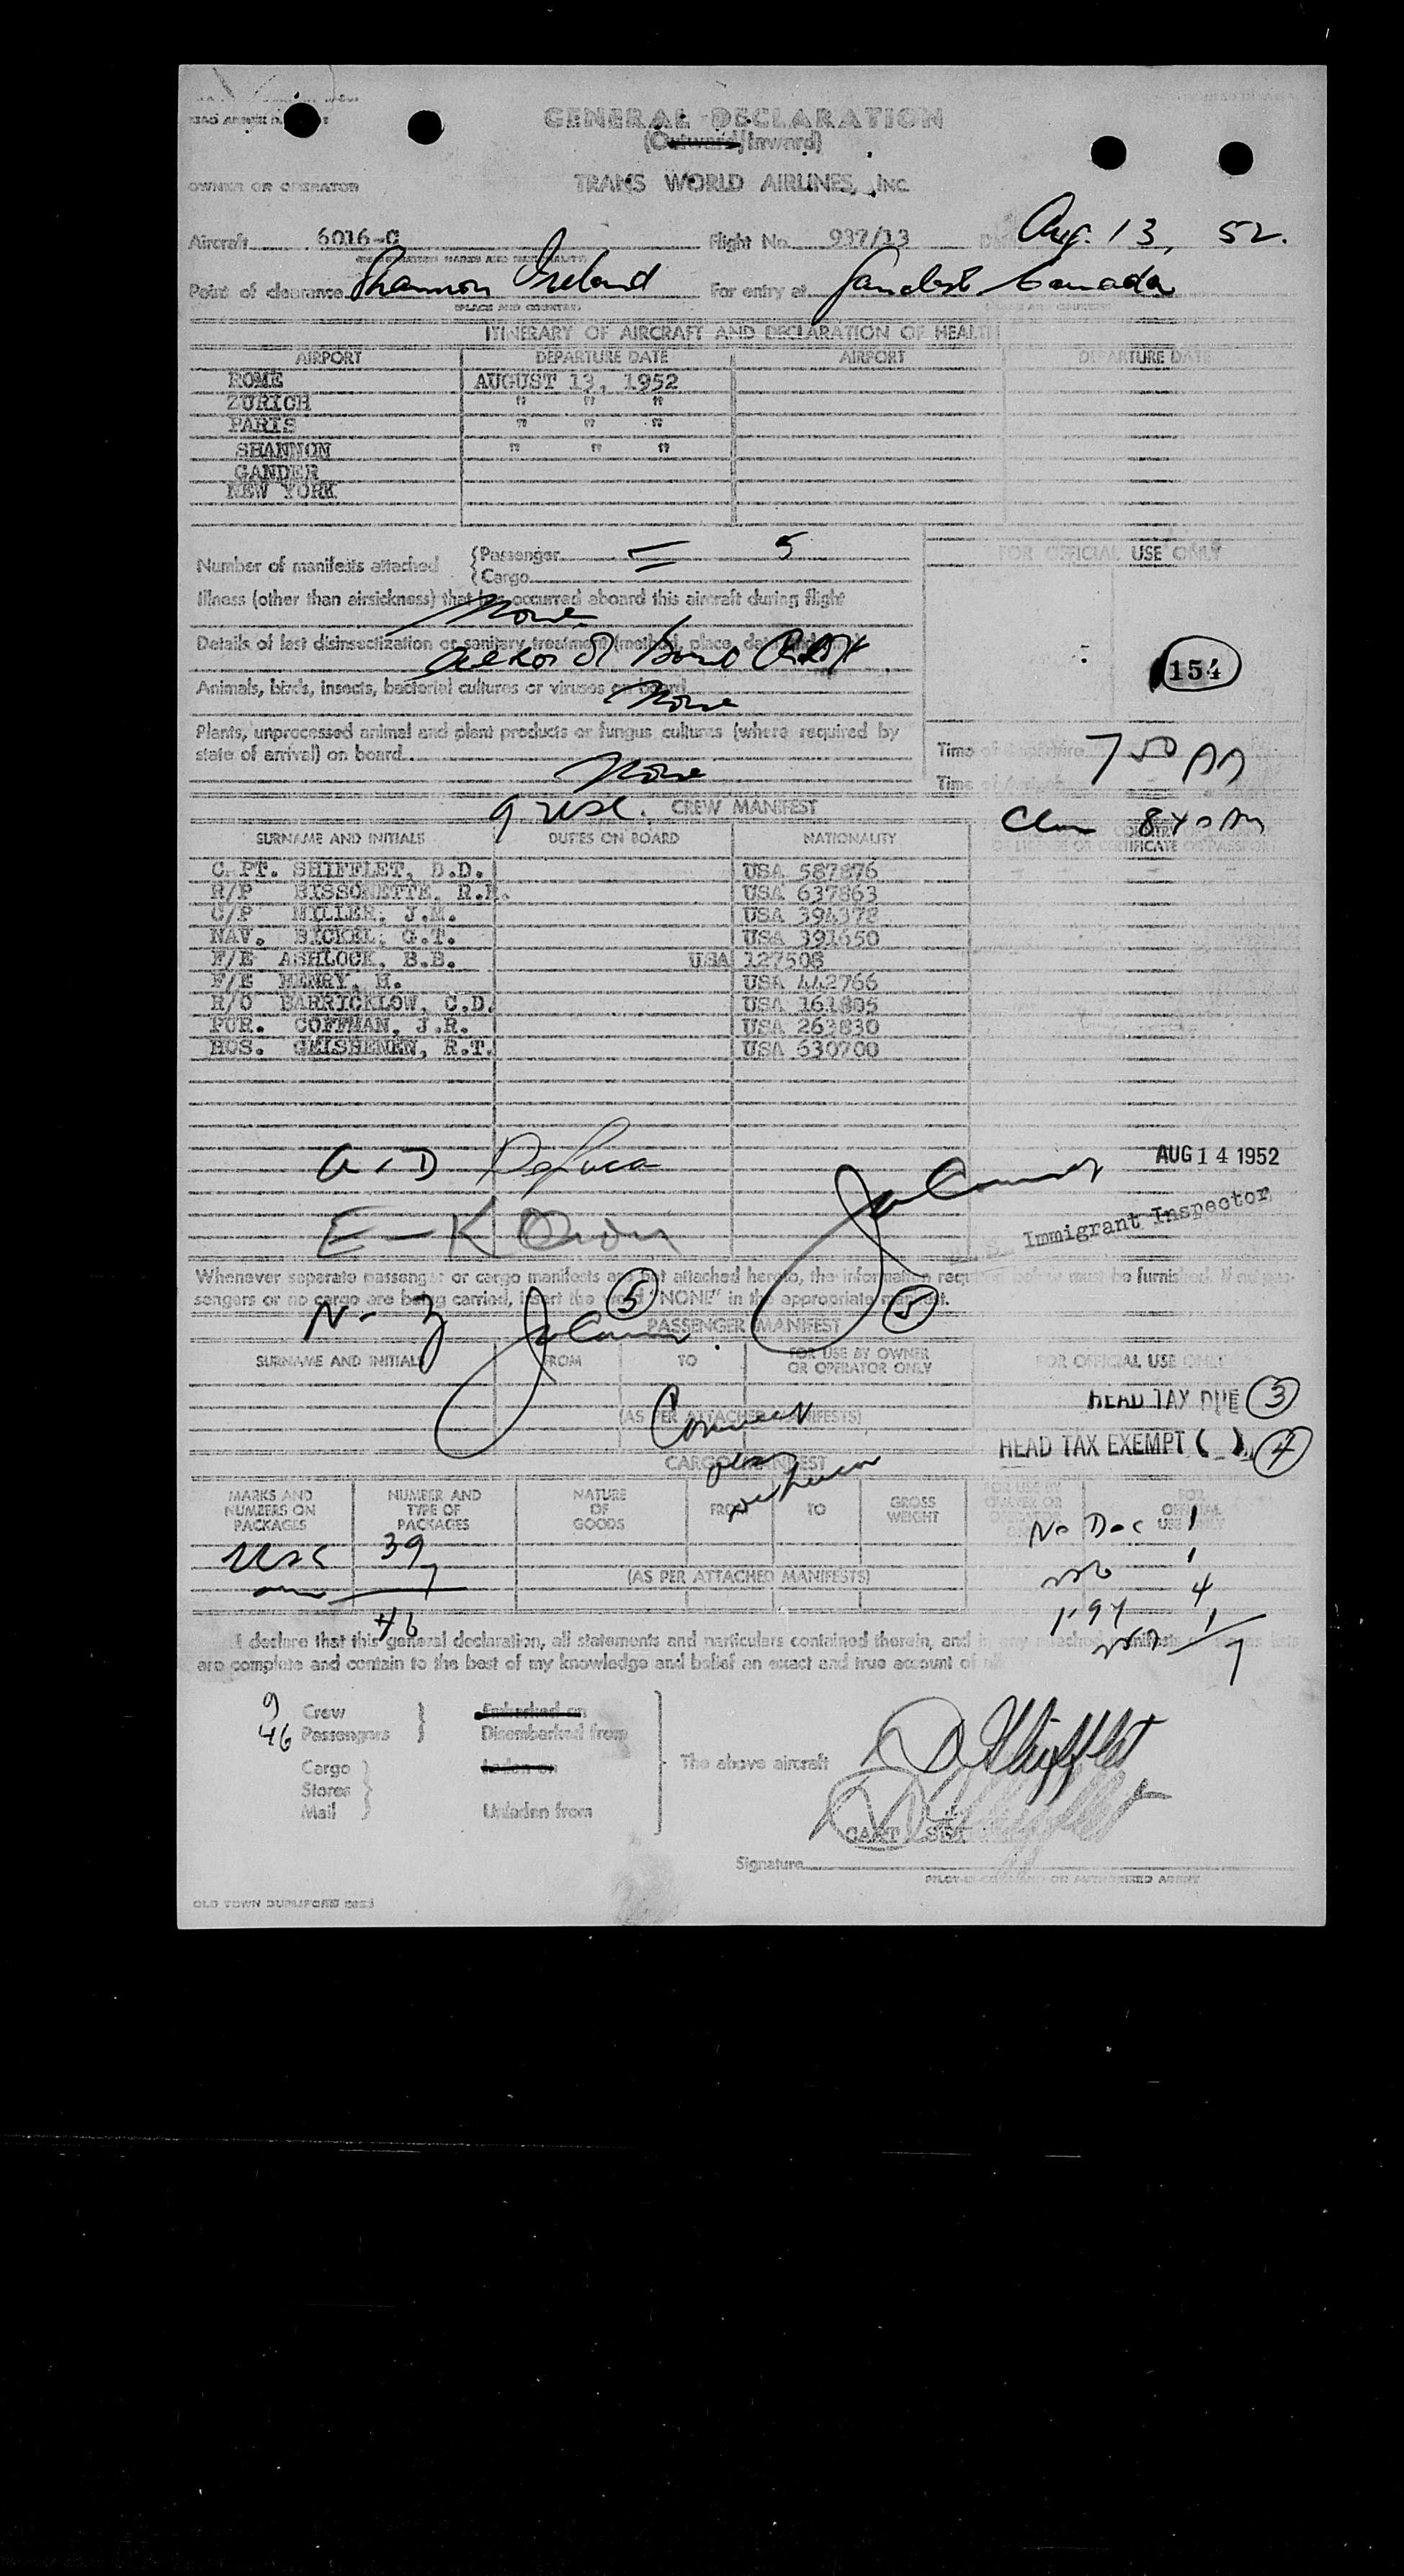 GENERAL DECLARATION
(Outward/Inward)
OWNER OR OPERATOR TRANS WORLD AIRLINES, Inc
Aircraft 6016-C Flight No. 937/13 Aug. 13, 52.
Point of clearance Shannon Ireland For entry at Gander Canada
(PLACE AND COUNTRY)
ITINERARY OF AIRCRAFT AND DECLARATION OF HEALTH
AIRPORT DEPARTURE DATE AIRPORT DEPARTURE DATE
ROME AUGUST 13, 1952
ZURICH " " "
PARIS " " "
SHANNON " " "
GANDER
NEW YORK
Number of manifests attached {Passenger 5
{Cargo
FOR OFFICIAL USE ONLY
Illness (other than airsickness) that has occurred aboard this aircraft during flight
None
Details of last disinsectization or sanitary treatment (method, place, date
154
Animals, birds, insects, bacterial cultures or viruses on board
None
Plants, unprocessed animal and plant products or fungus cultures (where required by
state of arrival) on board
None
Time of Departure 7 50 AM
Time
9 USC. CREW MANIFEST
8 40 AM
SURNAME AND INITIALS DUTIES ON BOARD NATIONALITY COUNTRY OF LICENSE OR CERTIFICATE OR PASSPORT
CAPT. SHIFFLET, D.D. USA 587876
R/P BISSONETTE, R.E. USA 637863
C/P MILLER, J.M. USA 394372
NAV. BICKEL, G.T. USA 391650
F/E ASHLOCK, B.B. USA 127508
F/E HENRY, H. USA 442766
R/O BARRICKLOW, C.D. USA 161805
PUR. COFFMAN, J.R. USA 263830
HOS. GEISHENEN, R.T. USA 630700
A - D DeLuca
AUG 14 1952
E - K
Immigrant Inspector
Whenever separate passenger or cargo manifests are not attached hereto, the information required below must be furnished. If no pas-
sengers or no cargo are being carried, insert the word "NONE" in the appropriate manifest.
N - Z 5 5
PASSENGER MANIFEST
SURNAME AND INITIALS FROM TO FOR USE BY OWNER OR OPERATOR ONLY FOR OFFICIAL USE ONLY
HEAD TAX DUE 3
(AS PER ATTACHED MANIFESTS)
HEAD TAX EXEMPT ( ) 4
CARGO MANIFEST
MARKS AND NUMBERS ON PACKAGES NUMBER AND TYPE OF PACKAGES NATURE OF GOODS FROM TO GROSS WEIGHT FOR USE BY OWNER OR OPERATOR ONLY FOR OFFICIAL USE ONLY
No Doc 1
USC 39
1
7 (AS PER ATTACHED MANIFESTS)
4
46
1
7
I declare that this general declaration, all statements and particulars contained therein, and in any attached manifests
are complete and contain to the best of my knowledge and belief an exact and true account of all
9 Crew } Embarked on
46 Passengers } Disembarked from
Cargo } Laden on The above aircraft D Shifflet
Stores }
Mail } Unladen from
Signature
PILOT-IN-COMMAND OR AUTHORIZED AGENT